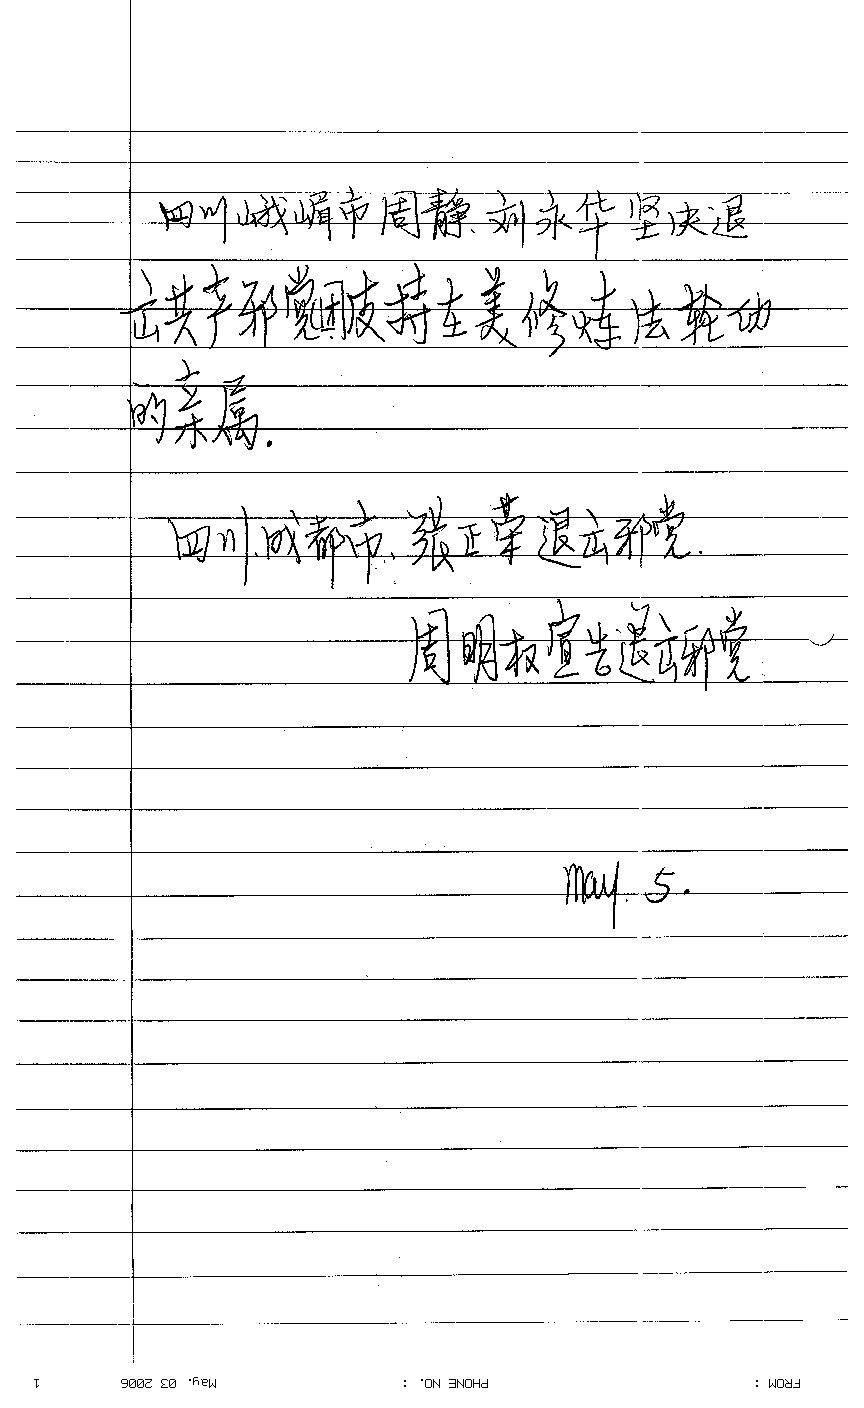 四川峨嵋市周静、刘永华坚决退
出共产邪党团支持在美修炼法轮功
的亲属.
四川.成都市、张正荣退出邪党.
周明权宣告退出邪党
May. 5.
FROM : PHONE NO. : May. 03 2006 1